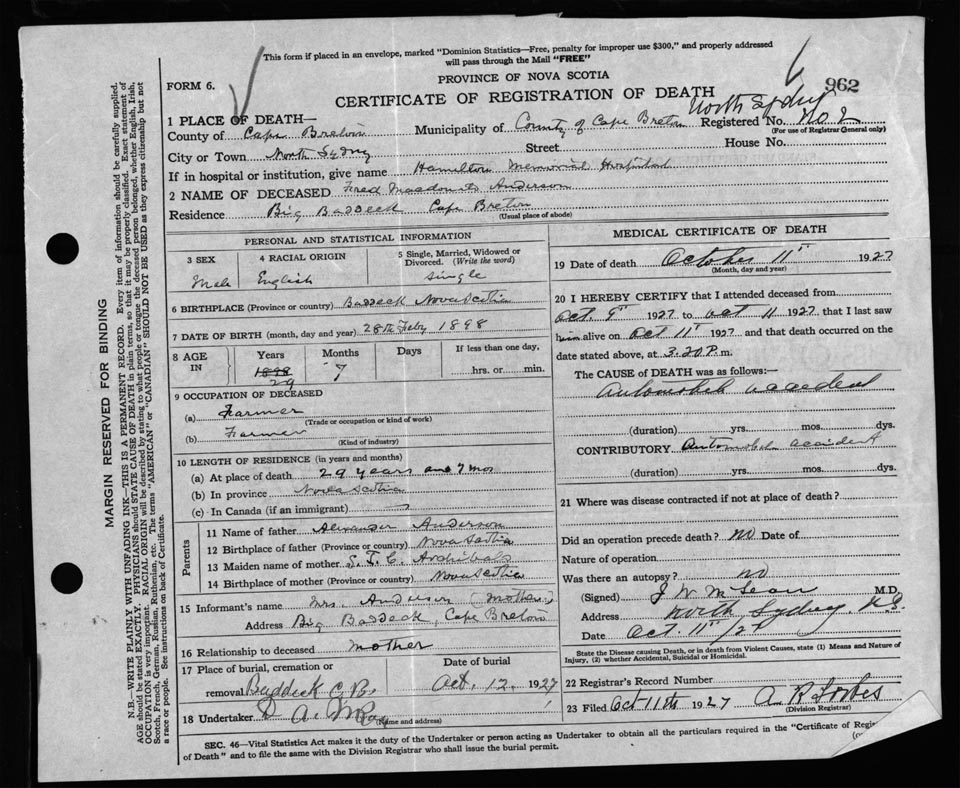 This form if placed in an envelope, marked "Dominion Statistics—Free, penalty for improper use $300," and properly addressed
will pass through the Mail "FREE"
FORM 6.
PROVINCE OF NOVA SCOTIA
962
CERTIFICATE OF REGISTRATION OF DEATH
North Sydney
1 PLACE OF DEATH—
Registered No. No. 2
(For use of Registrar General only)
County of Cape Breton Municipality of County of Cape Breton
City or Town North Sydney Street House No.
If in hospital or institution, give name Hamilton Memorial Hospital
2 NAME OF DECEASED Fred Macdonald Anderson
Residence Big Baddeck Cape Breton
(Usual place of abode)
PERSONAL AND STATISTICAL INFORMATION
3 SEX 4 RACIAL ORIGIN 5 Single, Married, Widowed or
Divorced. (Write the word)
Male English Single
6 BIRTHPLACE (Province or country) Baddeck Nova Scotia
7 DATE OF BIRTH (month, day and year) 28th Feby 1898
8 AGE IN Years Months Days If less than one day,
1898 7 hrs. or min.
29
9 OCCUPATION OF DECEASED
(a) Farmer
(Trade or occupation or kind of work)
(b) Farmer
(Kind of industry)
10 LENGTH OF RESIDENCE (in years and months)
(a) At place of death 29 years and 7 mos
(b) In province Nova Scotia
(c) In Canada (if an immigrant)
Parents
11 Name of father Alexander Anderson
12 Birthplace of father (Province or country) Nova Scotia
13 Maiden name of mother S. T. C. Archibald
14 Birthplace of mother (Province or country) Nova Scotia
15 Informant's name Mrs. Anderson (Mother)
Address Big Baddeck, Cape Breton
16 Relationship to deceased Mother
17 Place of burial, cremation or Date of burial
removal Baddeck C. B. Oct. 12, 1927
18 Undertaker D. A. McRae
(Name and address)
MEDICAL CERTIFICATE OF DEATH
19 Date of death October 11th 1927
(Month, day and year)
20 I HEREBY CERTIFY that I attended deceased from
Oct 9th 1927 to Oct 11 1927, that I last saw
him alive on Oct 11th 1927 and that death occurred on
date stated above, at 3.20 P. m.
The CAUSE of DEATH was as follows:—
Automobile accident
(duration) yrs. mos. dys.
CONTRIBUTORY Automobile accident
(duration) yrs. mos. dys.
21 Where was disease contracted if not at place of death?
Did an operation precede death? no Date of
Nature of operation
Was there an autopsy? no
(Signed) J W McLean M.D.
Address North Sydney N.S.
Date Oct. 11th/27
State the Disease causing Death, or in death from Violent Causes, state (1) Means and Nature of
Injury, (2) whether Accidental, Suicidal or Homicidal.
22 Registrar's Record Number
23 Filed Oct 11th 1927 A. R. Forbes
(Division Registrar)
SEC. 46—Vital Statistics Act makes it the duty of the Undertaker or person acting as Undertaker to obtain all the particulars required in the "Certificate of
of Death" and to file the same with the Division Registrar who shall issue the burial permit.
MARGIN RESERVED FOR BINDING
N.B.—WRITE PLAINLY WITH UNFADING INK—THIS IS A PERMANENT RECORD. Every item of information should be carefully supplied.
AGE should be stated EXACTLY. PHYSICIANS should STATE CAUSE OF DEATH in plain terms, so that it may be properly classified. Exact statement of
OCCUPATION is very important. RACIAL ORIGIN will be described by stating to what people or tongue the deceased person belonged, whether English, Irish,
Scotch, French, German, Russian, Ruthenian, etc. The terms "AMERICAN" or "CANADIAN" SHOULD NOT BE USED as they express citizenship but not
a race or people. See instructions on back of Certificate.